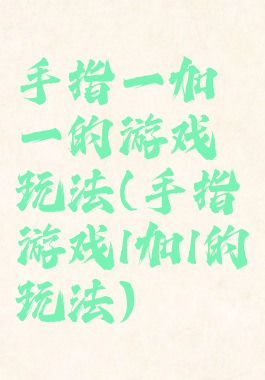 手指一加
一的游戏
玩法(手指
游戏1加1的
玩法)